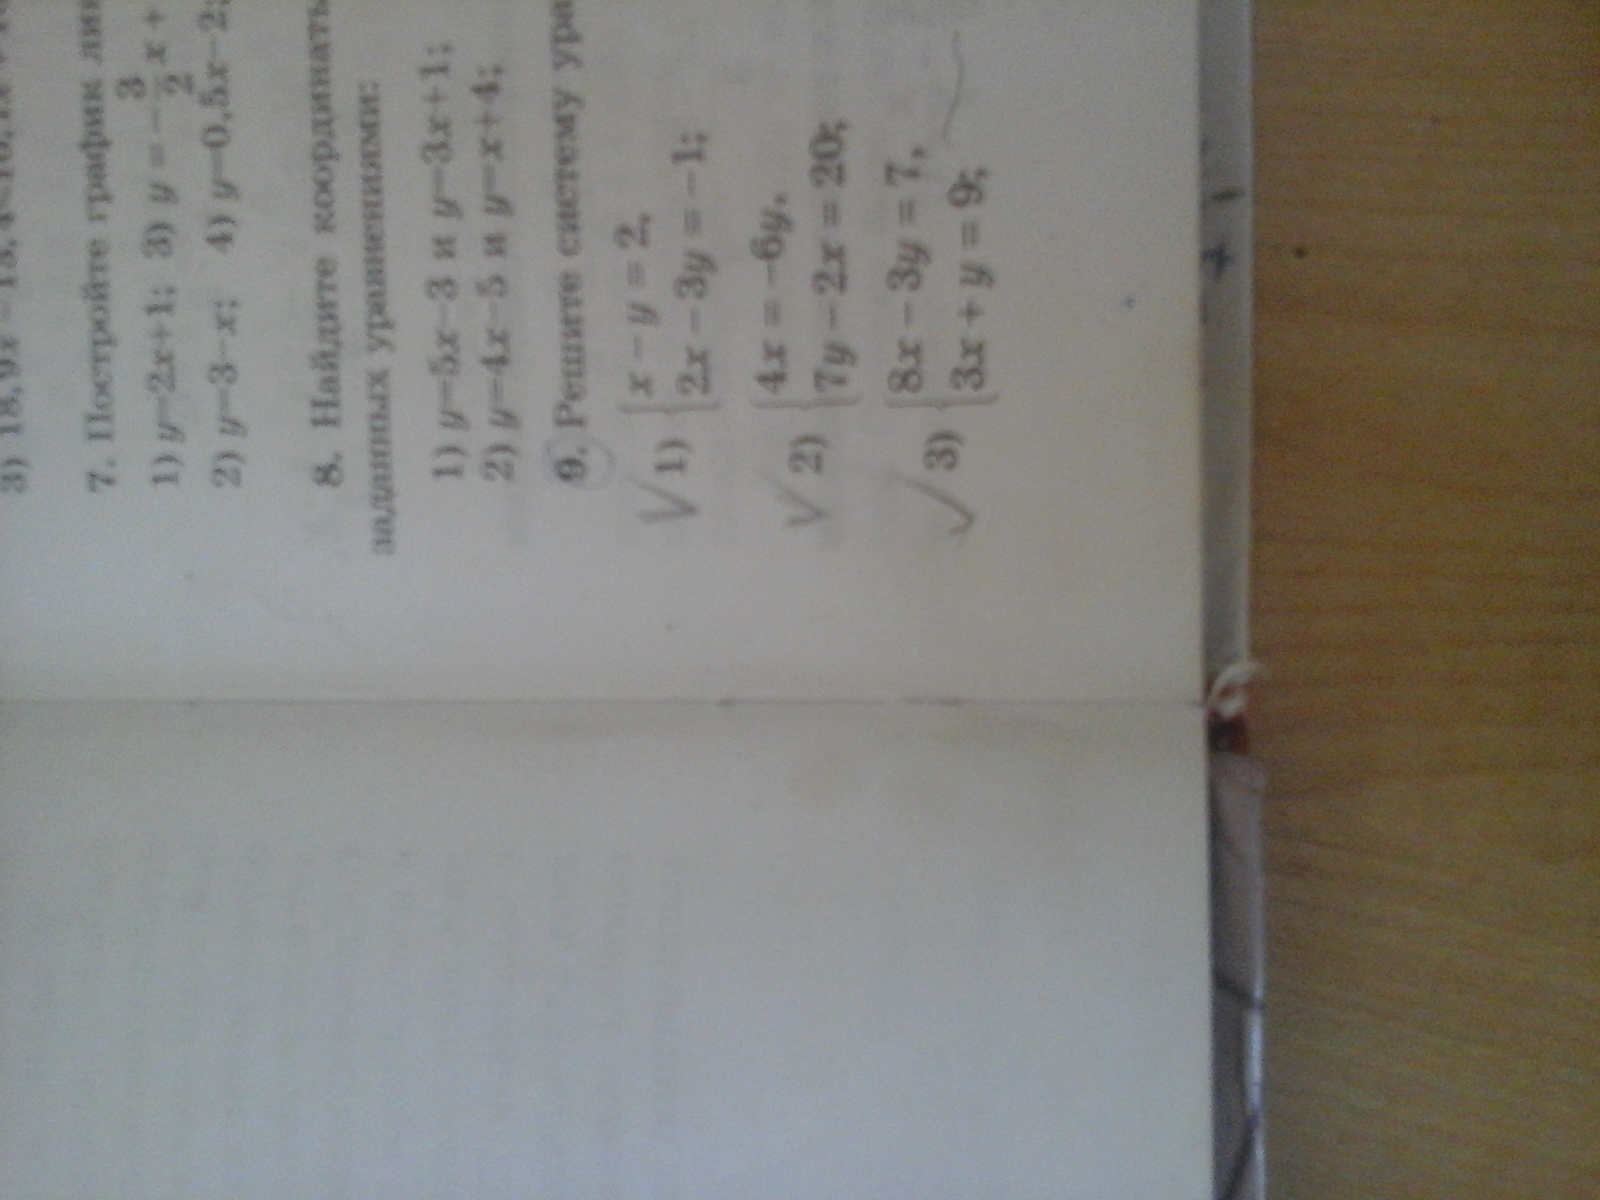 7. Постройте график
1) y=2x+1; 3) y = -3/2 x +
2) y=3-x; 4) y=0,5x-2;
8. Найдите координаты
заданных уравнениями:
1) y=5x-3 и y=3x+1;
2) y=4x-5 и y=x+4;
9. Решите систему
1) { x - y = 2,
2x - 3y = -1;
2) { 4x = -6y,
7y - 2x = 20;
3) { 8x - 3y = 7,
3x + y = 9;